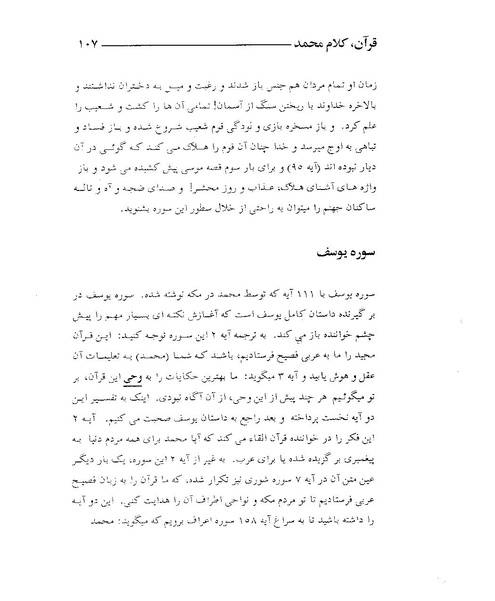 قرآن، کلام محمد ۱۰۷
زمان او تمام مردان هم جنس باز شدند و رغبت و میل به دختران نداشتند و
بالاخره خداوند با ریختن سنگ از آسمان! تمامی آن ها را کشت و شعیب را
علم کرد. و باز مسخره بازی و لودگی قوم شعیب شروع شده و باز فساد و
تباهی به اوج میرسد و خدا چنان آن قوم را هلاک می کند که گوئی در آن
دیار نبوده اند (آیه ۹۵) و برای بار سوم قصه موسی پیش کشیده می شود و باز
واژه های آشنای هلاک، عذاب و روز محشر! و صدای ضجه و آه و ناله
ساکنان جهنم را میتوان به راحتی از خلال سطور این سوره بشنوید.
سوره یوسف
سوره یوسف با ۱۱۱ آیه که توسط محمد در مکه نوشته شده. سوره یوسف در
بر گیرنده داستان کامل یوسف است که آغازش نکته ای بسیار مهم را پیش
چشم خواننده باز می کند. به ترجمه آیه ۲ این سوره توجه کنید: این قرآن
مجید را ما به عربی فصیح فرستادیم، باشد که شما (محمد) به تعلیمات آن
عقل و هوش یابید و آیه ۳ میگوید: ما بهترین حکایات را به وحی این قرآن، بر
تو میگوئیم هر چند پیش از این وحی، از آن آگاه نبودی. اینک به تفسیر این
دو آیه نخست پرداخته و بعد راجع به داستان یوسف صحبت می کنیم. آیه ۲
این فکر را در خواننده قرآن القاء می کند که آیا محمد برای همه مردم دنیا به
پیغمبری بر گزیده شده یا برای عرب. به غیر از آیه ۲ این سوره، یک بار دیگر
عین متن آن در آیه ۷ سوره شوری نیز تکرار شده، که ما قرآن را به زبان فصیح
عربی فرستادیم تا تو مردم مکه و نواحی اطراف آن را هدایت کنی. این دو آیه
را داشته باشید تا به سراغ آیه ۱۵۸ سوره اعراف برویم که میگوید: محمد